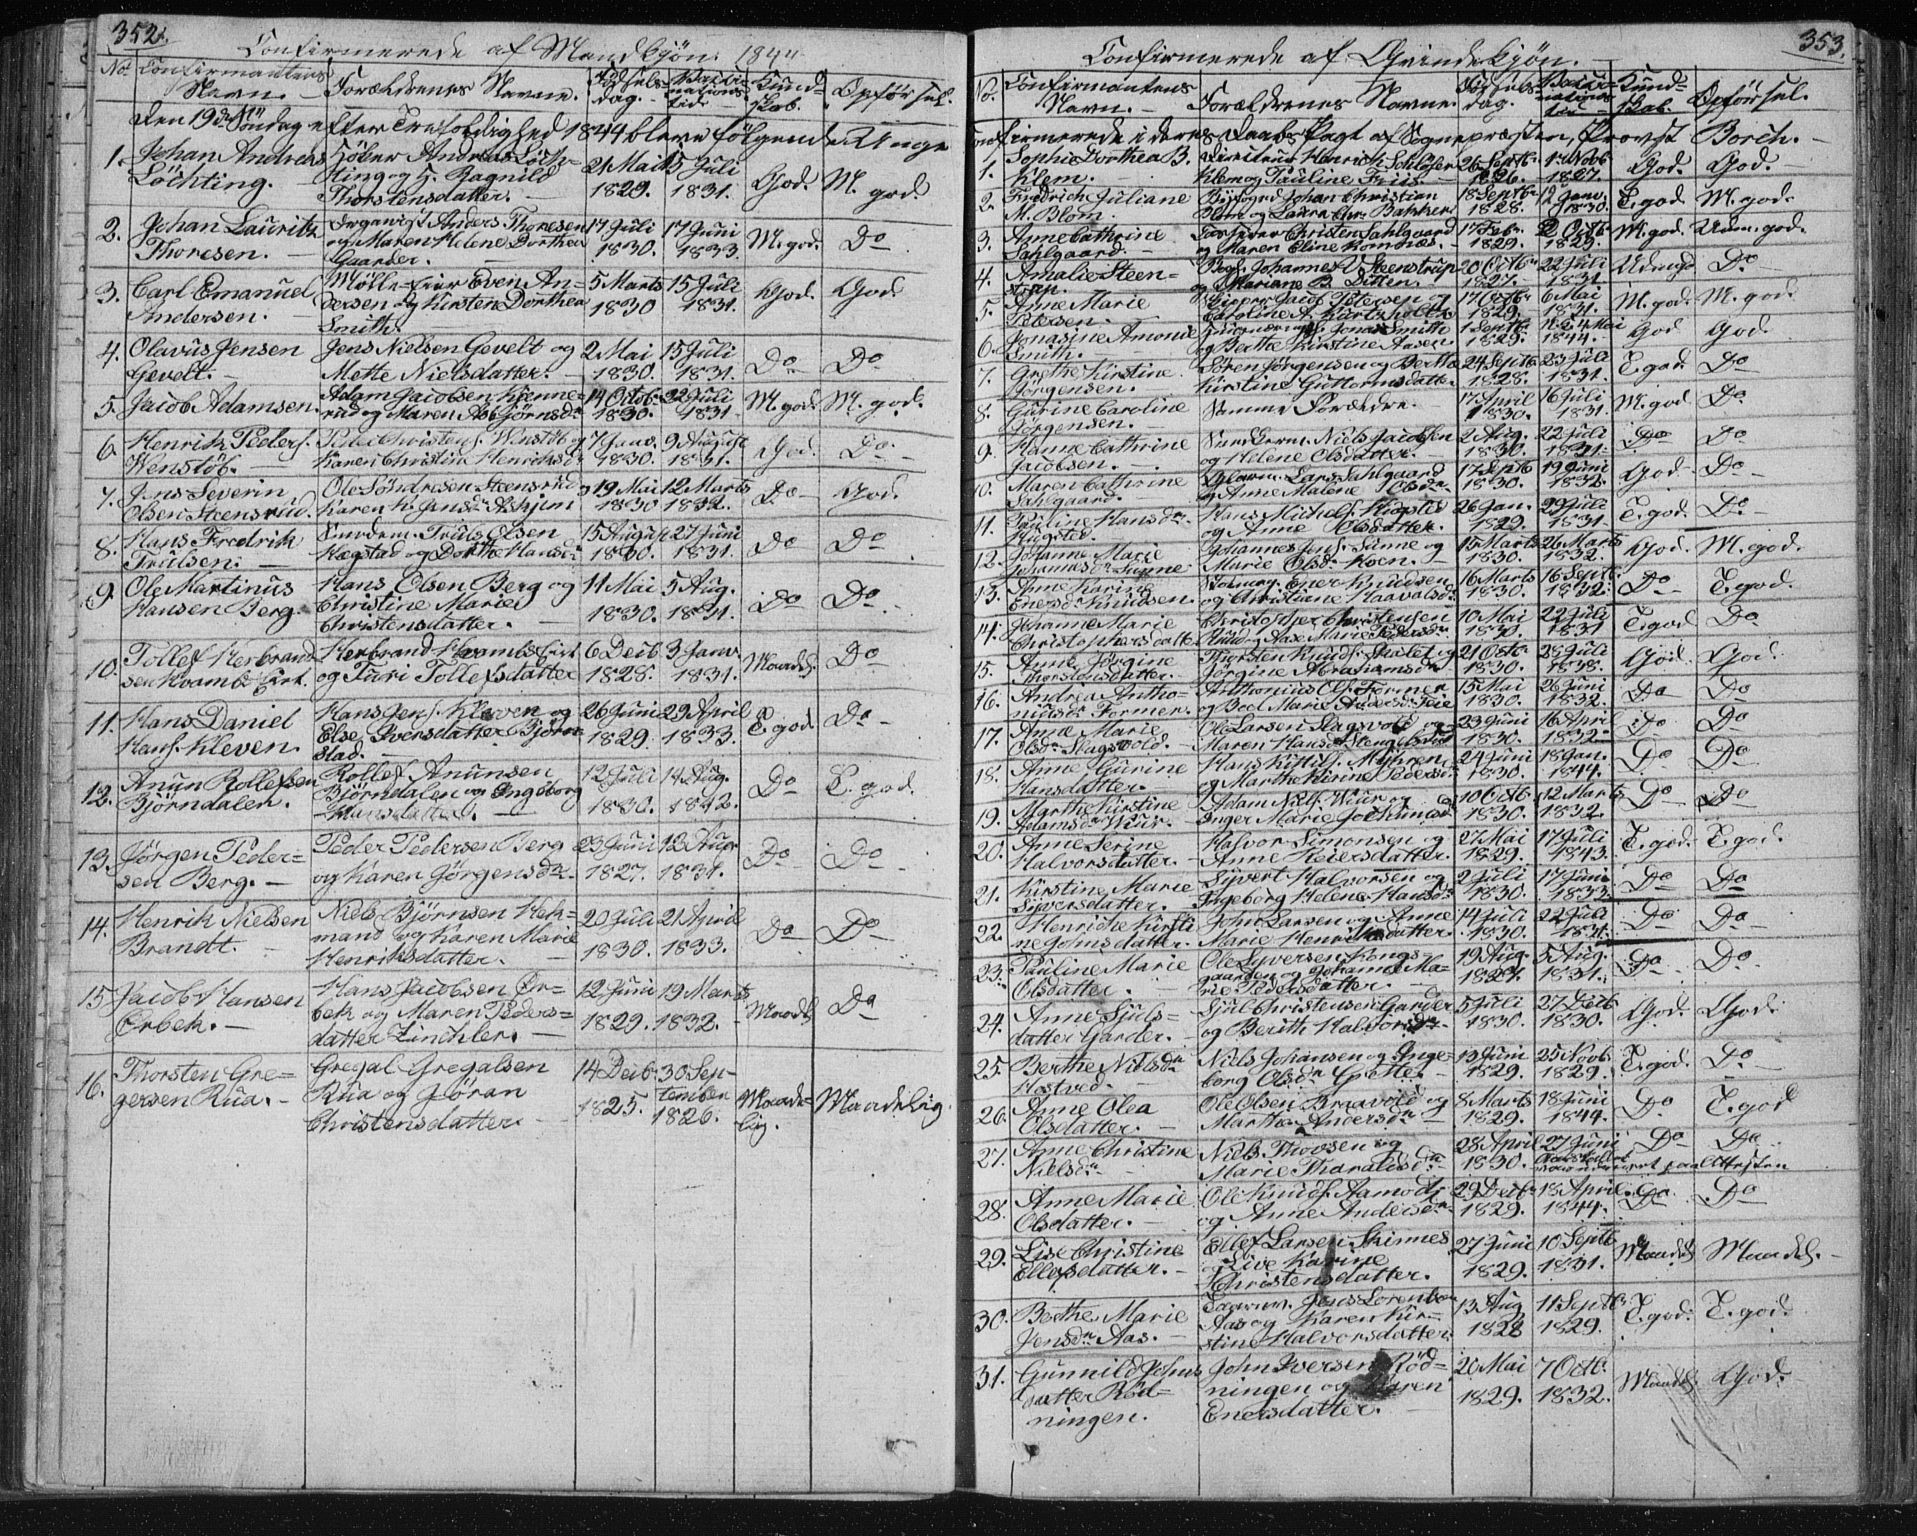 352.
Confirmerede af Mandkjøn. 1844
No. Confirmantens Navn. Forældrenes Navne. Fødselsdag. Vaccinationstid. Kundskab. Opførsel.
Den 19de Søndag efter Trefoldighed 1844 bleve følgende Unge
1. Johan Andreas Høker Andreas Löch- 21 Mai 15 Juli
Löchting. ting og Ragnild Thorstensdatter. 1829. 1831. God. M. god.
2. Johan Lauritz Organist Anders Thoresen 17 Juli 17 Juni
Thoresen. og Maren Helene Dorthea Gaarder. 1830. 1833. M. god. Do
3. Carl Emanuel Mølle-Eier Even An- 5 Marts 15 Juli
Andersen. dersen og Kirsten Dorthea Smith. 1830 1831. God. God.
4. Olavus Jensen Jens Nielsen Gevelt og 2 Mai 15 Juli
Gevelt. Mette Nielsdatter. 1830. 1831. Do Do
5. Jacob Adamsen. Adam Jacobsen Kjenne-
rud og Maren Asbjørnsdr. 14 Octob. 1830. 22 Juli 1831. M. god. M. god.
6. Henrik Peders. Peder Christens. Wenstöb og 7 Janv. 9 August
Wenstöb. Karen Christin Henriksdr. 1830. 1831. God. Do
7. Jens Severin Ole Söndresen Steensrud 19 Mai 12 Marts
Olsen Steensrud. Karen H. Jensdr. Askjem 1830 1832. Do God.
8. Hans Fredrik Truls Olsen 15 August 27 Juni
Trulsen. Hægstad og Dorthe Hansdr. 1830. 1831. Do Do
9. Ole Martinus Hans Olsen Berg og 11 Mai 5 Aug.
Hansen Berg. Christine Marie Christensdatter. 1830. 1831. Do Do
10. Tollef Herbrand- Herbrand 6 Decb. 3 Janv.
sen og Turi Tollefsdatter 1828. 1831. Maadel. Do
11. Hans Daniel Hans Jens. Kleven og 26 Juni 29 April
Hans. Kleven. Else Iversdatter Bjørn-
stad. 1829. 1833. T. god Do
12. Anun Rollefsen Rollef Anunsen 12 Juli 14 Aug.
Bjørndalen. Bjørndalen og Ingeborg
Hansdatter. 1830. 1842. Do T. god.
13. Jørgen Peder- Peder Pedersen Berg 23 Juni 12 Aug.
sen Berg. og Karen Jørgensdr. 1827. 1831. Do Do
14. Henrik Nielsen Niels Bjørnsen Hek- 20 Juli 21 April
Brandt. mand og Karen Marie
Henriksdatter. 1830. 1833. Do Do
15. Jacob Hansen Hans Jacobsen Ør- 12 Juni 19 Marts
Ørbek. bek og Maren Peders-
datter Zinchler. 1829. 1832. Maadel. Do
16. Thorsten Gre- Gregal Gregalsen 14 Decb. 30 Sep-
gersen Rua. Rua og Jøran
Christensdatter. 1825. tember 1826. Maade-
lig. Maadelig.
353.
Confirmerede af Qvindekjøn.
No. Confirmantens Navn. Forældrenes Navne. Fødselsdag. Vaccinationstid Kundskab. Opførsel.
Confirmerede i deres Daabs Pagt af Sognepræsten, Provst Borch.
1. Sophie Dorthea B. Directeur Henrich Schlöser 26 Septb. 1 Novb.
Klem. Klem og Pauline Friis 1826. 1827. God. God.
2. Fredrich Juliane Byfoged Johan Christian 18 Septb. 12 Janv.
M. Blom. Blom og Laura Chr. Bakker 1828. 1830. T. god M. god.
3. Anne Cathrine Christen Sahlgaard 17 Feb. 2 Octb.
Sahlgaard og Maren Eline Komnæs. 1829. 1829. M. god. Udm. god.
4. Amalie Steen- Bogh. Johannes V. Steenstrup 20 Octb. 22 Juli
strup. og Mariane B. Ditten. 1827. 1831. Udm. gd Do
5. Anne Marie Jacob Petersen og 17 Octb. 6 Mai
Petersen. Caroline A. Kurtzholtz 1829. 1831. M. god. M. god.
6. Jonasine Amonie Jonas Smith 1 Septb. 24 Mai
Smith. og Berthe Kirstine Aasen 1829. 1844. God God.
7. Grethe Kirstine Søren Jørgensen og Berthe 24 Septb. 23 Juli
Jørgensen. Kirstine Guttormsdatter 1828. 1831. T. god Do
8. Gurine Caroline Samme Forældre. 17 April 16 Juli
Jørgensen. 1830. 1831. M. god Do
9. Hanne Cathrine Niels Jacobsen 2 Aug. 22 Juli
Jacobsen. og Helene Olsdatter. 1830. 1831. Do Do
10. Maren Cathrine Lars Sahlgaard 17 Septb. 19 Juni
Sahlgaard. og Anne Malene Olsdr. 1830. 1832. God Do
11. Pauline Hansdr. Hans Michels. Hugsted 26 Jan. 29 Juli
Hugsted. og Anne Olsdatter. 1829. 1831. T. god. Do
12. Johanne Marie Johannes Jens. Sunne og 15 Marts 26 Marts
Johannesdr. Sunne Marie Olsdr. Koen. 1830. 1832. God. M. god.
13. Anne Karine Ener Knudsen 16 Marts 16 Septb.
Enersdr. Knudsen. og Christiane Haavalsdr. 1830. 1832. Do T. god.
14. Johanne Marie Christopher Christensen 10 Mai 22 Juli
Christophersdatter og Ane Marie Pedersdr. 1830. 1831 T. god Do
15. Anne Jørgine Thorsten Knuds. og 21 Octb. 28 Juli
Thorstensdatter. Jørgine Abrahamsdr. 1830. 1838. God God.
16. Andrea Antho- Anthonius Ols. Former 15 Mai 26 Juni
niusdr. Former. og Boel Marie Andersdr. Teie 1830. 1832. Do Do
17. Anne Marie Ole Larsen Slagsvold og 23 Juni 16 April
Olsdr. Slagsvold. Maren Hansdr. 1830. 1832. Do Do
18. Anne Gurine Hans Kittils. Myhren 24 Juni 18 Jan.
Hansdatter. og Marthe Karine Pedersdr. 1830. 1844. Do Do
19. Marthe Kirstine Adam Niels. Wiur og 10 Octb. 12 Marts
Adamsdr. Wiur. Inger Marie Jochumsdr. 1830. 1832. Do Do
20. Anne Serine Halvor Simonsen og 27 Mai 17 Juli
Halvorsdatter. Anne Reiersdatter. 1829. 1843. T. god. T. god.
21. Kirstine Marie Syvert Halvorsen og 2 Juli 17 Juni
Syversdatter. Ingeborg Helene Hansdr. 1830. 1833. Do Do
22. Henriche Kirsti- John Larsen og Anne 14 Juli 22 Juli
ne Johnsdatter. Marie Henriksdatter. 1830. 1831. Do Do
23. Pauline Marie Ole Syversen Kongs- 19 Aug. 5 Aug.
Olsdatter. gaarden og Johanne Ma-
rie Pedersdatter. 1827. 1831. Do Do
24. Anne Sjuls- Sjul Christensen Garder 5 Juli 27 Decb.
datter Garder. og Berith Halvorsdr. 1830. 1830. God. God.
25. Berthe Nielsdr. Niels Johansen og Inge- 13 Juni 25 Novb.
Hostved. borg Olsdr. 1829. 1829. T. god. Do
26. Anne Olea Ole Olsen Braavold og 8 Marts 18 Juni
Olsdatter. Marthe Andersdr. 1829. 1844. Do T. god
27. Anne Christine Niels Thovsen og 28 April 27 Juni
Nielsdr. Marie Tharaldsdr. 1830. Do Do
28. Anne Marie Ole Knuds. Aamodt 29 Decb. 18 April
Olsdatter. og Anne Andersdr. 1829. 1844. Do Do
29. Lise Christine Ellef Larsen Skinnes 27 Juni 10 Septb.
Ellefsdatter. og Live Karine
Christensdatter. 1829. 1831. Maadel. Maadel.
30. Berthe Marie Jens Lorentsen 13 Aug 11 Septb.
Jensdr. Aas. Aas og Karen Kir-
stine Halvorsdatter. 1828 1829. T. god. T. god.
31. Gunnild Johns- John Iversen Rød- 20 Mai 7 Octb.
datter Rød- ningen og Karen
ningen. Enersdatter. 1829. 1832. Maadel. God.